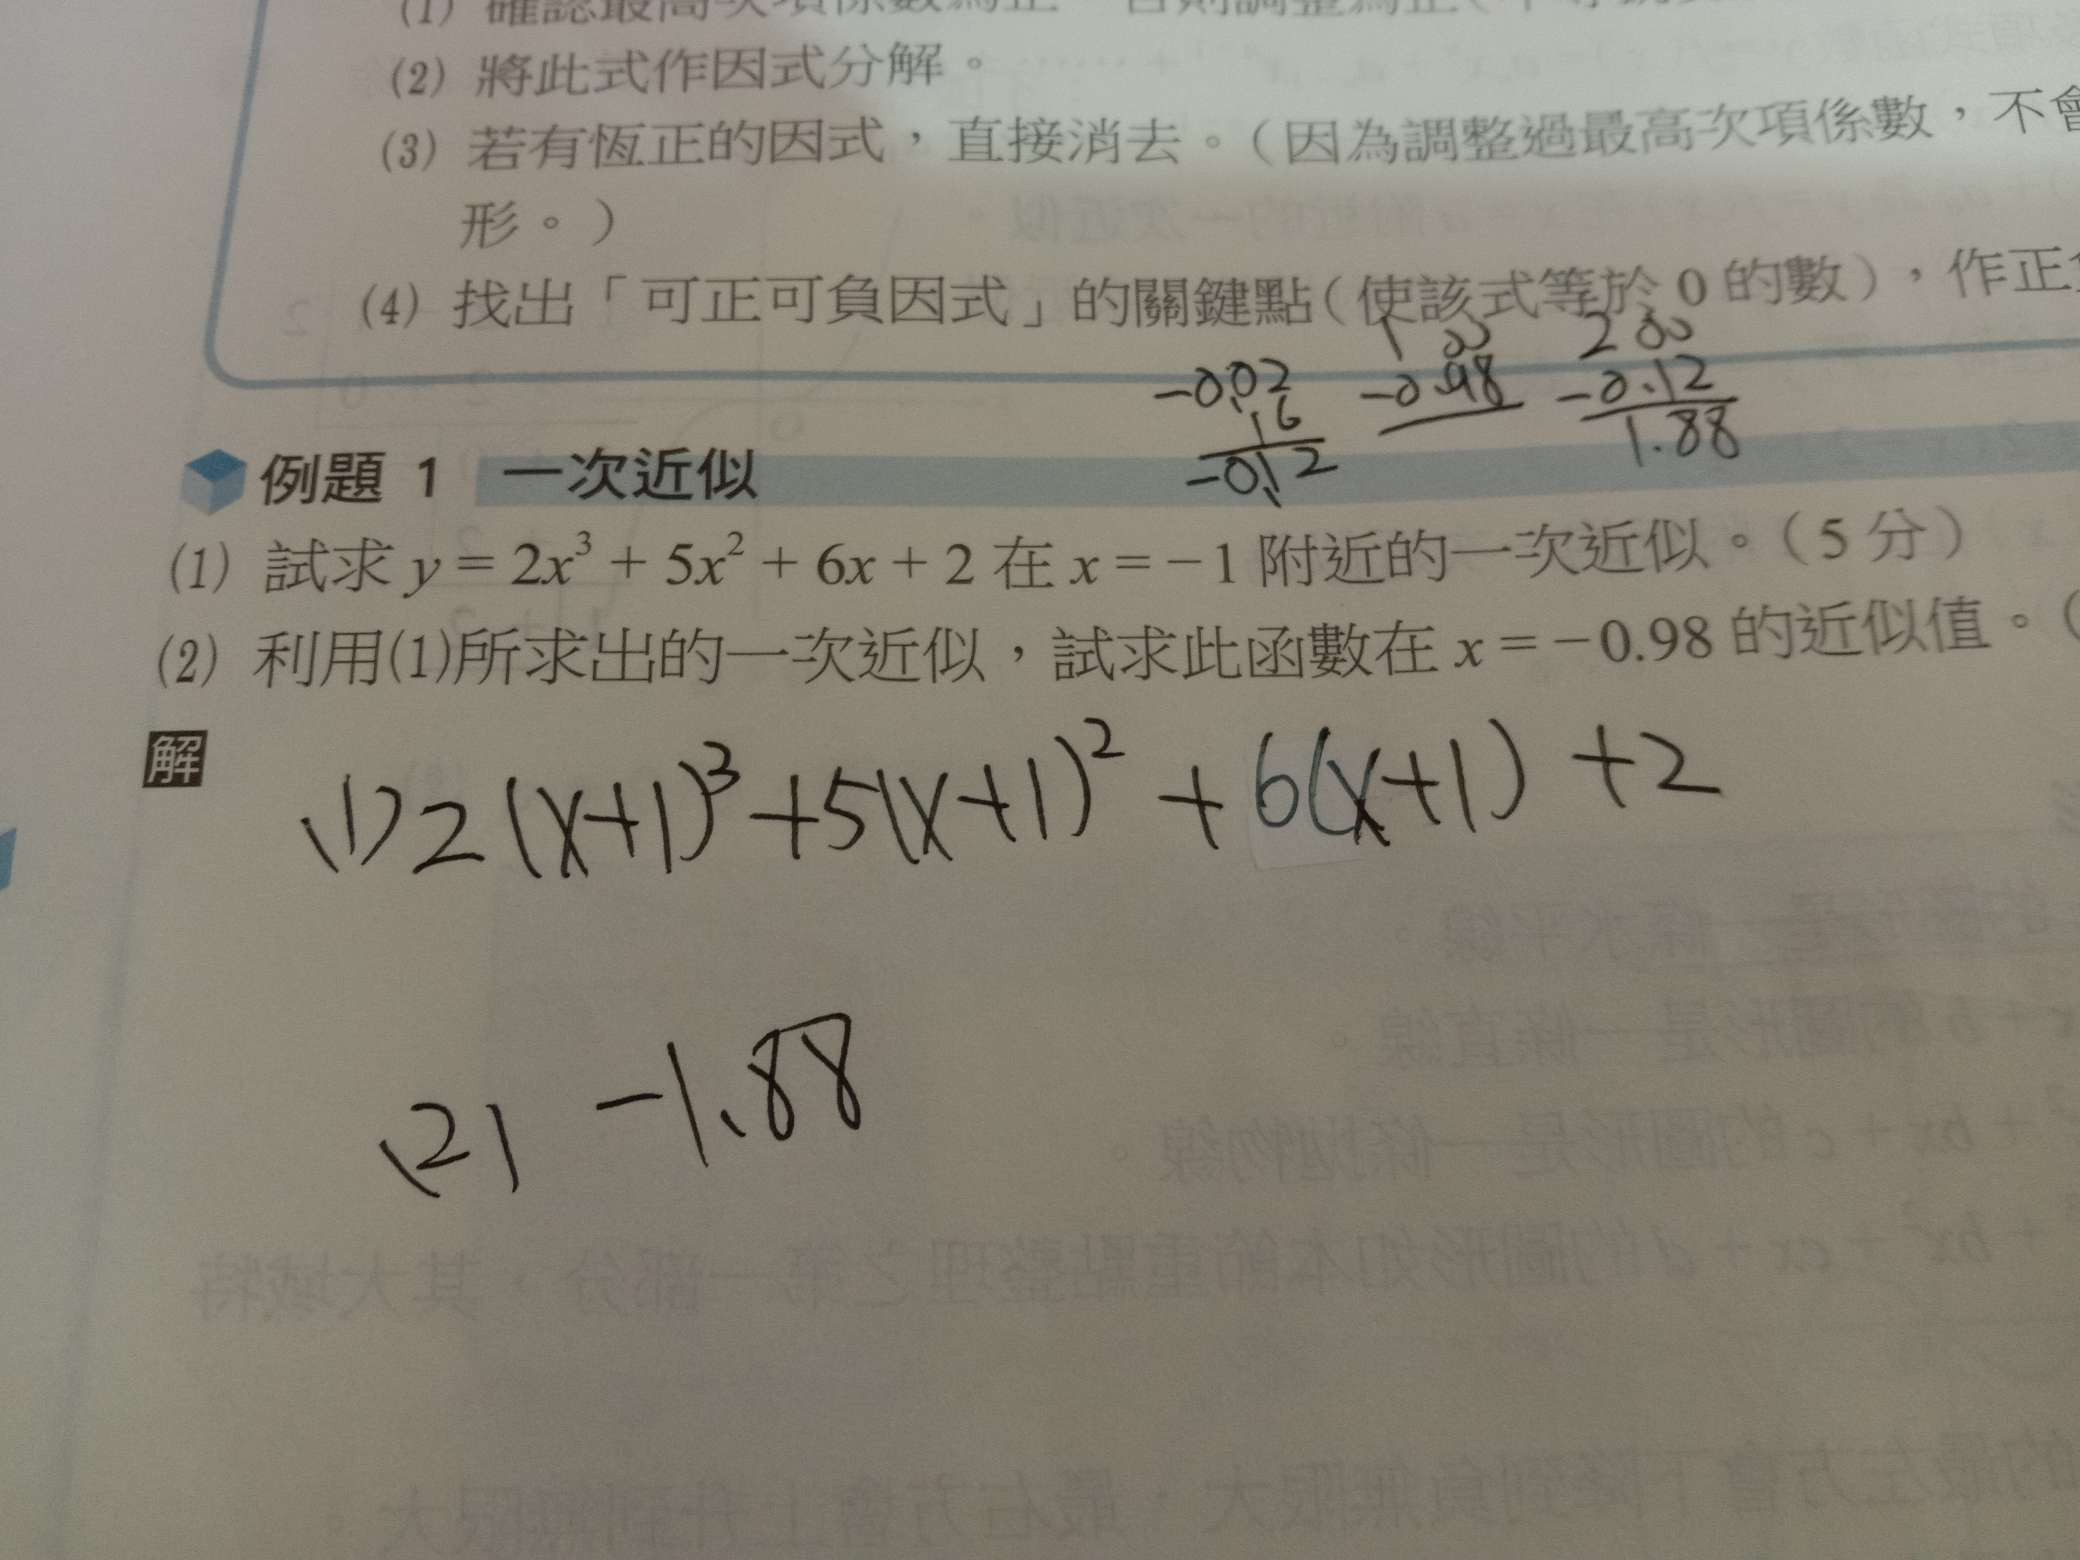 (1) 確認最高次項係數為正，否則調整為正(
(2) 將此式作因式分解。
(3) 若有恆正的因式，直接消去。(因為調整過最高次項係數，不會
形。)
(4) 找出「可正可負因式」的關鍵點(使該式等於 0 的數)，作正
-0.02
16
-0.12
1 00
-0.98
2 00
-0.12
1.88
例題 1 一次近似
(1) 試求 y = 2x³ + 5x² + 6x + 2 在 x = −1 附近的一次近似。(5 分)
(2) 利用(1)所求出的一次近似，試求此函數在 x = −0.98 的近似值。(
解
(1) 2(x+1)³+5(x+1)²+6(x+1)+2
(2) -1.88